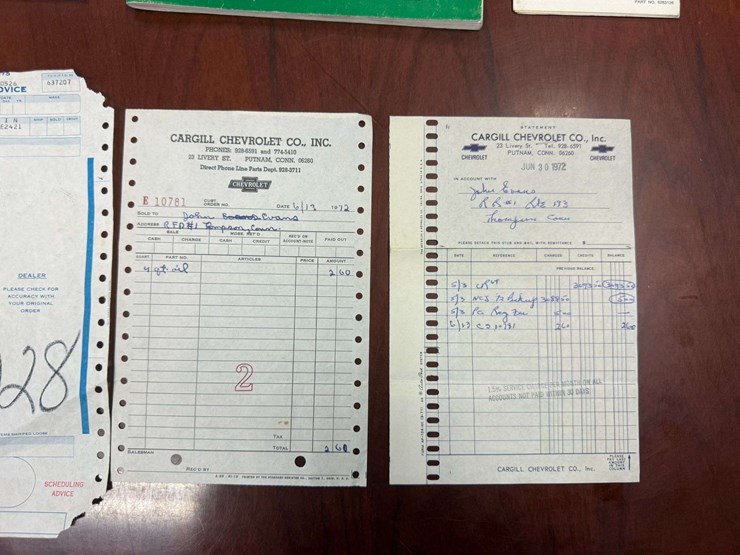 PART NO.
DVICE
637207
E2421
DEALER
PLEASE CHECK FOR
ACCURACY WITH
YOUR ORIGINAL
ORDER
28
SCHEDULING
ADVICE
CARGILL CHEVROLET CO., INC.
PHONES: 928-6591 and 774-5410
23 LIVERY ST. PUTNAM, CONN. 06260
Direct Phone Line Parts Dept. 928-5711
CHEVROLET
E 10781
CUST. ORDER NO.
DATE 6/13 1972
SOLD TO John Evans
ADDRESS RFD#1 Tompson, Conn.
SALE
CASH CHARGE CASH CREDIT
REC'D ON ACCOUNT NOTE
PAID OUT
QUANT. PART NO. ARTICLES PRICE AMOUNT
4 qt oil 2 60
2
TAX
SALESMAN TOTAL 2 60
REC'D BY
STATEMENT
CARGILL CHEVROLET CO., Inc.
23 Livery St. Tel. 928-6591
PUTNAM, CONN. 06260
CHEVROLET CHEVROLET
JUN 30 1972
IN ACCOUNT WITH
John Evans
RR#1 Rte 193
Thompson Conn
PLEASE DETACH THIS STUB AND MAIL WITH REMITTANCE $
DATE REFERENCE CHARGES CREDITS BALANCE
PREVIOUS BALANCE
5/3
5/3
5/3 Reg Fee 5 —
6/13 10781 2 60 2 60
1.5% SERVICE CHARGE PER MONTH ON ALL
ACCOUNTS NOT PAID WITHIN 30 DAYS
PLEASE
PAY LAST
AMOUNT
IN THIS
COLUMN
CARGILL CHEVROLET CO., Inc.